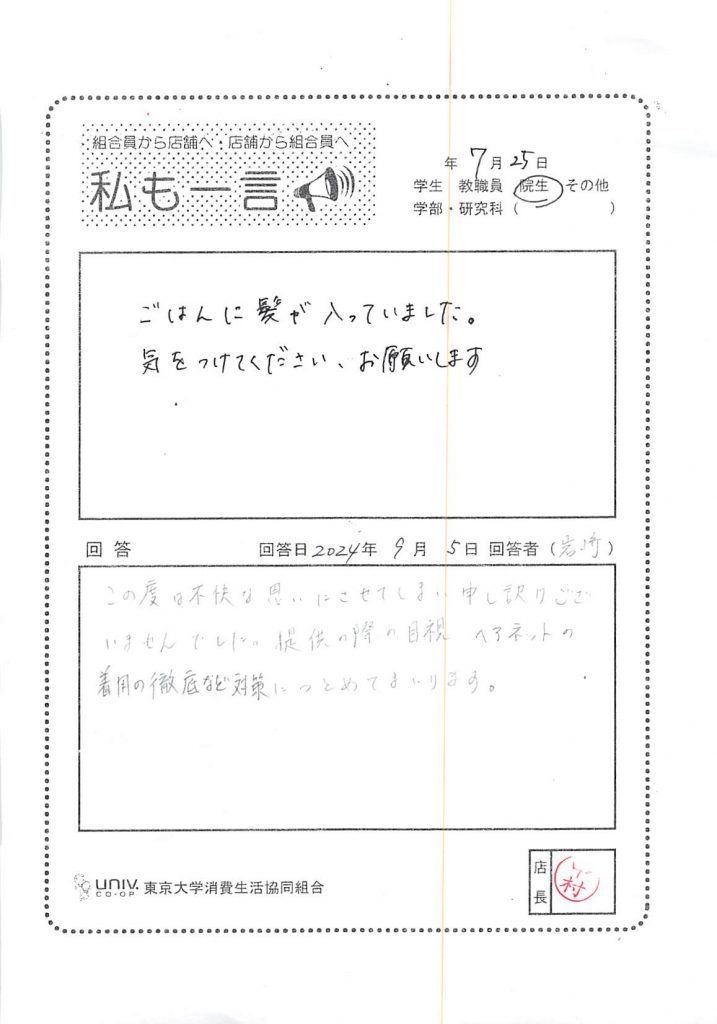 組合員から店舗へ・店舗から組合員へ
私も一言
年 7月 25日
学生 教職員 院生 その他
学部・研究科( )
ごはんに髪が入っていました。
気をつけてください、お願いします
回答 回答日 2024年 9月 5日 回答者(岩崎)
この度は不快な思いにさせてしまい申し訳けござ
いませんでした。提供の際の目視 ヘアネットの
着用の徹底など対策につとめてまいります。
UNIV. CO-OP 東京大学消費生活協同組合
店長
村